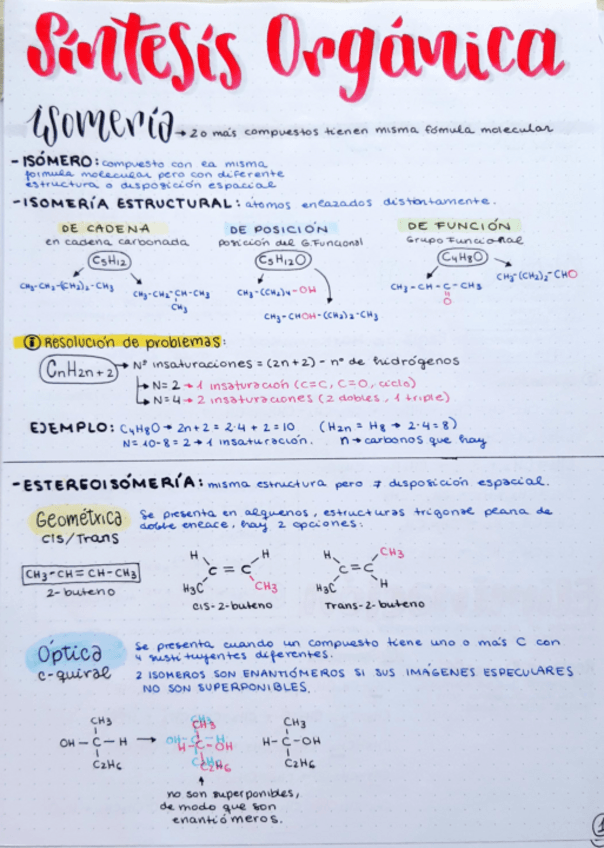 Síntesis Orgánica
isomería → 2 o más compuestos tienen misma fórmula molecular
- ISÓMERO: compuesto con la misma
formula molecular pero con diferente
estructura o disposición espacial
- ISOMERÍA ESTRUCTURAL: átomos enlazados distintamente.
DE CADENA
en cadena carbonada
C5H12
CH3-CH2-(CH2)2-CH3
CH3-CH2-CH-CH3
CH3
DE POSICIÓN
posición del G.Funcional
C5H12O
CH3-(CH2)4-OH
CH3-CHOH-(CH2)2-CH3
DE FUNCIÓN
Grupo Funcional
C4H8O
CH3-CH-C-CH3
O
CH3-(CH2)2-CHO
Resolución de problemas:
CnH2n+2 → Nº insaturaciones = (2n+2) - nº de hidrógenos
N=2 → 1 insaturación (C=C, C=O, ciclo)
N=4 → 2 insaturaciones (2 dobles, 1 triple)
EJEMPLO: C4H8O → 2n+2 = 2·4+2 = 10 (H2n = H8 → 2·4=8)
N= 10-8 = 2 → 1 insaturación. n → carbonos que hay
- ESTEREOISÓMERÍA: misma estructura pero ≠ disposición espacial.
Geométrica
cis/Trans
Se presenta en alquenos, estructuras trigonal plana de
doble enlace, hay 2 opciones:
CH3-CH=CH-CH3
2-buteno
H H
C=C
H3C CH3
cis-2-buteno
H CH3
C=C
H3C H
Trans-2-buteno
Óptica
c-quiral
Se presenta cuando un compuesto tiene uno o más C con
4 sustituyentes diferentes.
2 ISOMEROS SON ENANTIÓMEROS SI SUS IMÁGENES ESPECULARES
NO SON SUPERPONIBLES.
CH3
OH-C-H →
C2H6
CH3
H-C-OH
C2H6
CH3
H-C-OH
C2H6
no son superponibles,
de modo que son
enantiómeros.
1